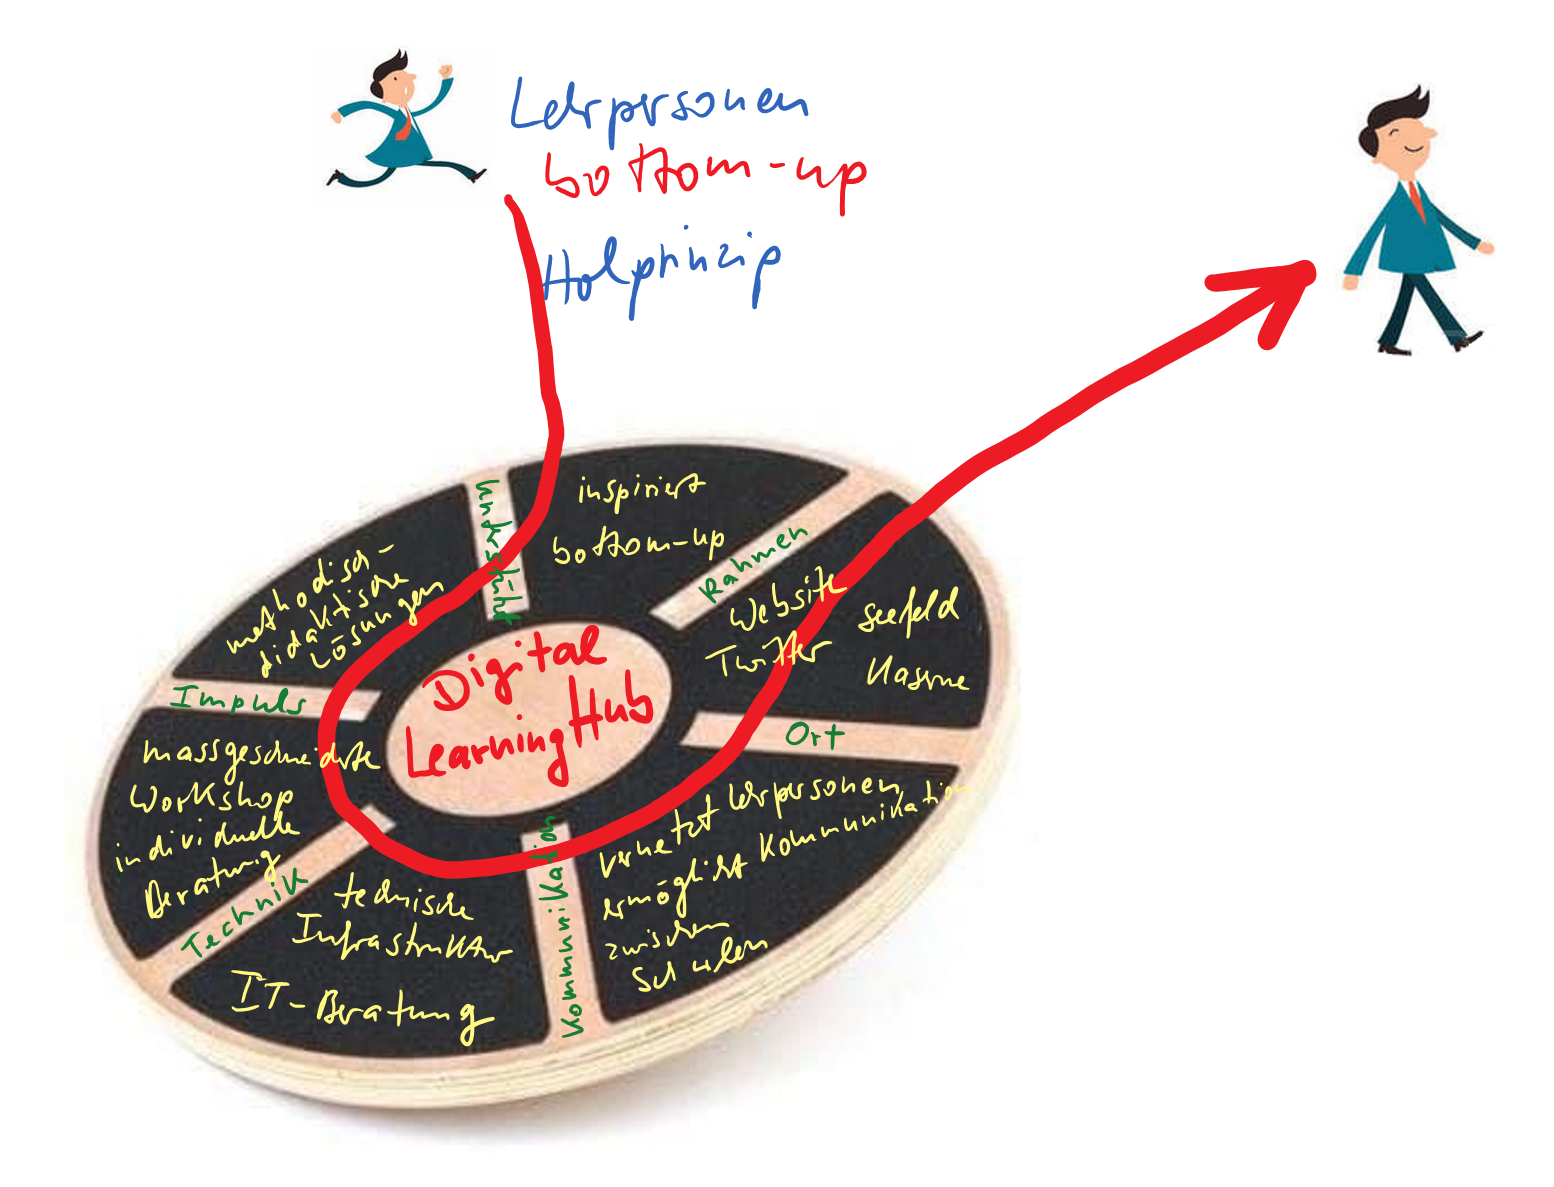 Lehrpersonen
bottom-up
Holprinzip
unterstützt
inspiriert
bottom-up
Rahmen
Website
Twitter
Seefeld
Kaserne
Ort
vernetzt Lehrpersonen
ermöglicht Kommunikation
zwischen
Schulen
Kommunikation
technische
Infrastruktur
IT-Beratung
Technik
massgeschneiderte
Workshop
individuelle
Beratung
Impuls
methodisch-
didaktische
Lösungen
Digital
LearningHub